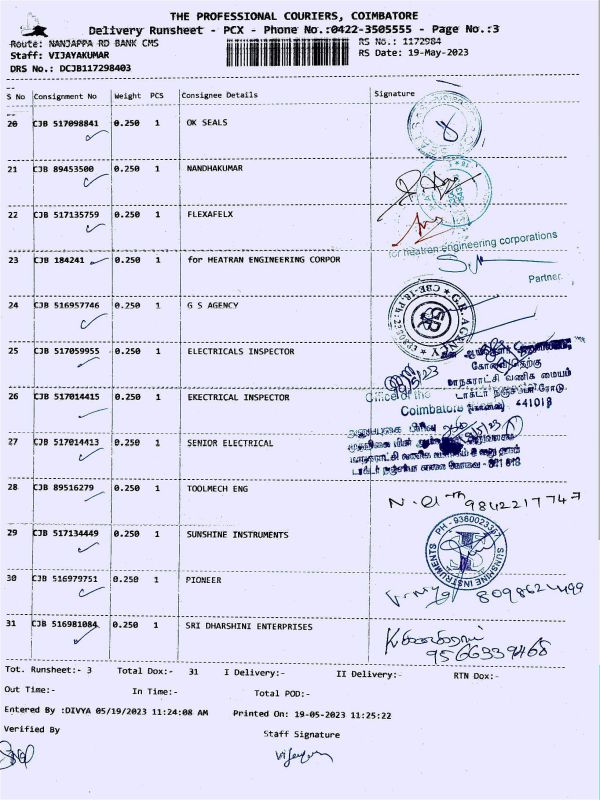 THE PROFESSIONAL COURIERS, COIMBATORE
Delivery Runsheet - PCX - Phone No.:0422-3505555 - Page No.:3
Route: NANJAPPA RD BANK CMS RS No.: 1172984
Staff: VIJAYAKUMAR RS Date: 19-May-2023
DRS No.: DCJB117298403
S No Consignment No Weight PCS Consignee Details Signature
20 CJB 517098841 0.250 1 OK SEALS
21 CJB 89453500 0.250 1 NANDHAKUMAR
22 CJB 517135759 0.250 1 FLEXAFELX
for heatran engineering corporations
23 CJB 184241 0.250 1 for HEATRAN ENGINEERING CORPOR
Partner.
24 CJB 516957746 0.250 1 G S AGENCY
25 CJB 517059955 0.250 1 ELECTRICALS INSPECTOR
மாநகராட்சி வணிக மையம்
26 CJB 517014415 0.250 1 EKECTRICAL INSPECTOR
Office of the
Coimbatore 641018
27 CJB 517014413 0.250 1 SENIOR ELECTRICAL
28 CJB 89516279 0.250 1 TOOLMECH ENG
9842217747
29 CJB 517134449 0.250 1 SUNSHINE INSTRUMENTS
PH - 9360023367
SUNSHINE INSTRUMENTS
30 CJB 516979751 0.250 1 PIONEER
8098624499
31 CJB 516981084 0.250 1 SRI DHARSHINI ENTERPRISES
9566939468
Tot. Runsheet:- 3 Total Dox:- 31 I Delivery:- II Delivery:- RTN Dox:-
Out Time:- In Time:- Total POD:-
Entered By :DIVYA 05/19/2023 11:24:08 AM Printed On: 19-05-2023 11:25:22
Verified By Staff Signature